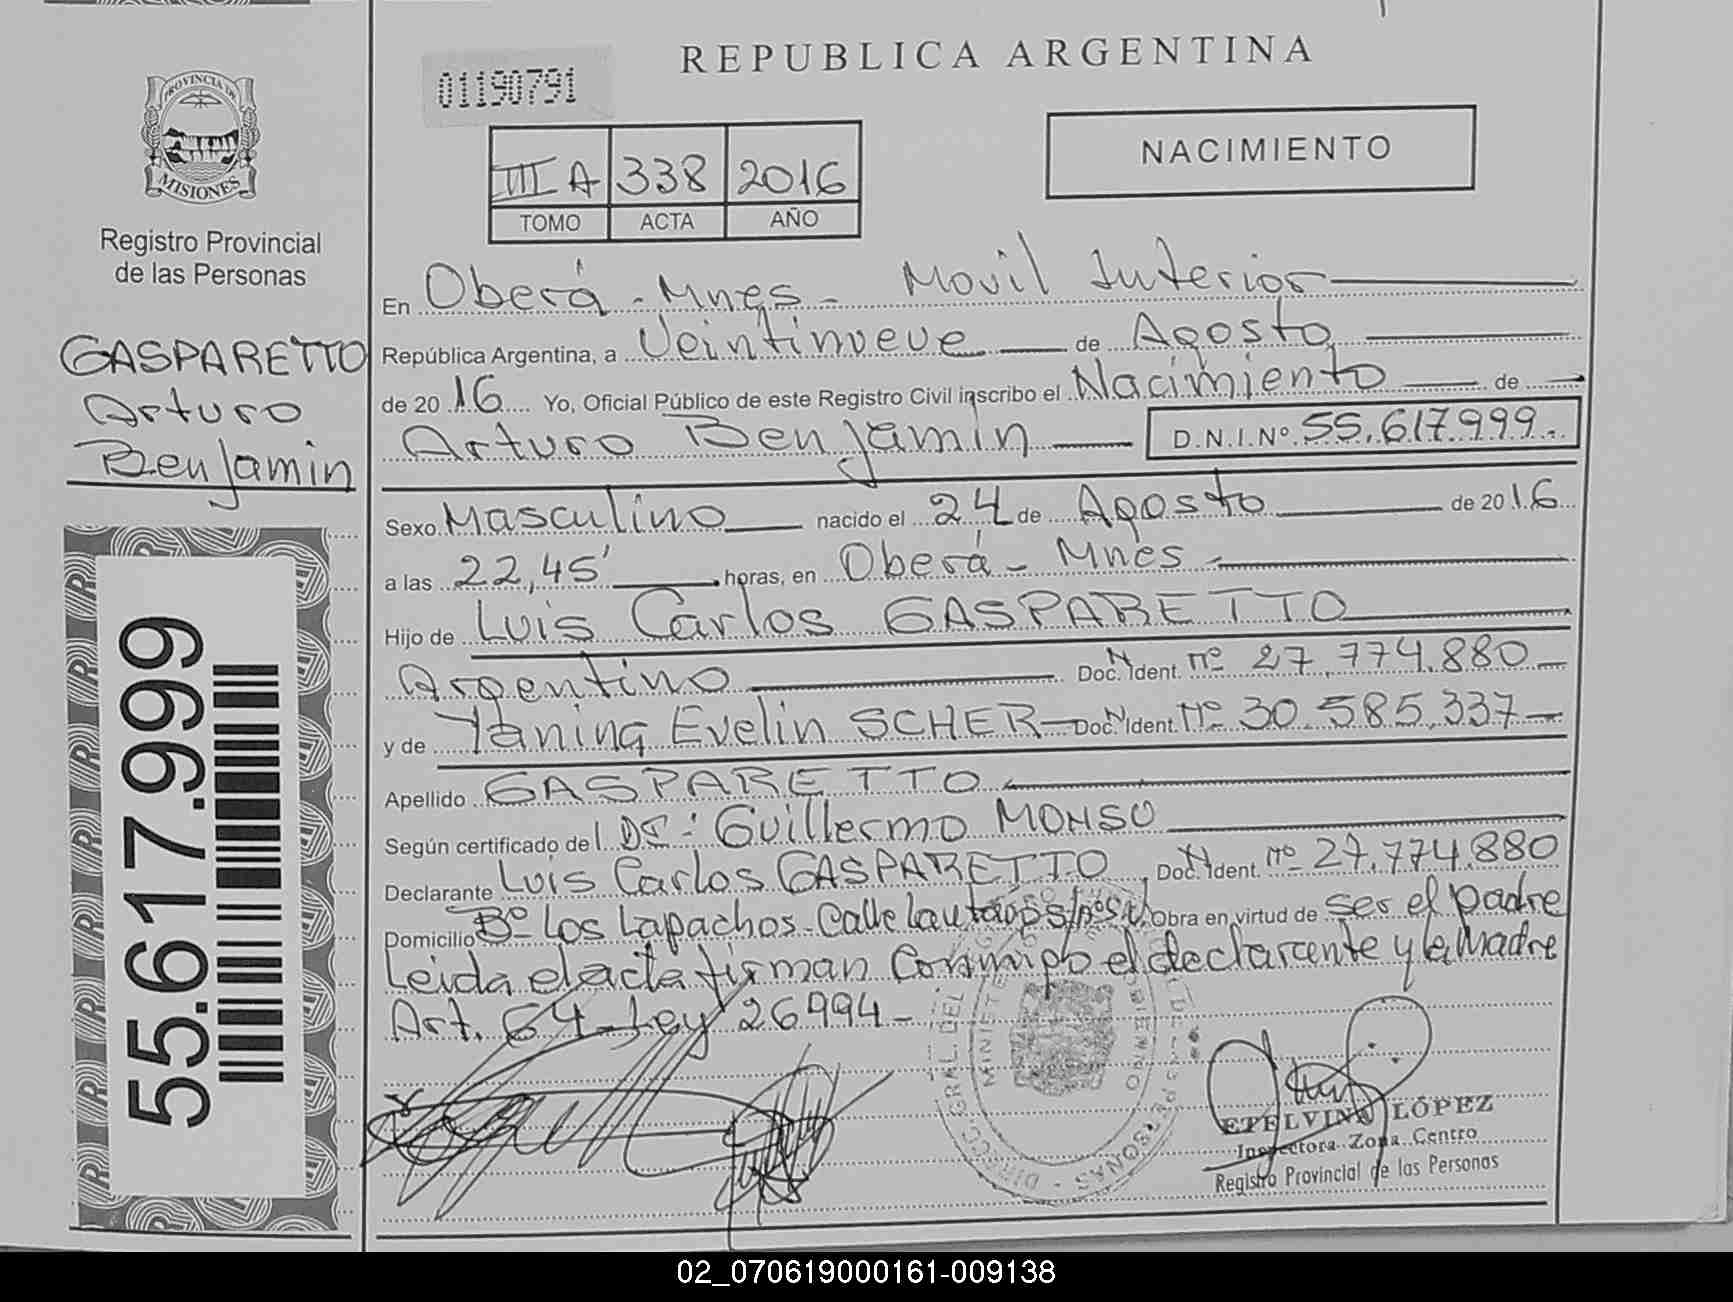 REPUBLICA ARGENTINA
01190791
NACIMIENTO
III A 338 2016
TOMO ACTA AÑO
PROVINCIA DE
MISIONES
Registro Provincial
de las Personas
GASPARETTO
Arturo
Benjamin
55.617.999
En Oberá - Mnes - Movil Interior
República Argentina, a Veintinueve de Agosto
de 2016 Yo, Oficial Público de este Registro Civil inscribo el Nacimiento de
Arturo Benjamin D.N.I.Nº 55.617.999.-
Sexo Masculino nacido el 24 de Agosto de 2016
a las 22,45' horas, en Oberá - Mnes
Hijo de Luis Carlos GASPARETTO
Argentino Doc. N Ident. nº 27.774.880
y de Yanina Evelin SCHER Doc. N Ident. nº 30.585.337
Apellido GASPARETTO
Según certificado del Dr: Guillermo MONSU
Declarante Luis Carlos GASPARETTO Doc. N Ident. nº 27.774.880
Domicilio Bº Los Lapachos - Calle Lautaro s/nº Obra en virtud de ser el padre
Leida el acta firman conmigo el declarante y la Madre
Art. 64 - Ley 26994 -
DIRECC. GRAL. DEL
PERSONAS
ETELVINA LÓPEZ
Inspectora Zona Centro
Registro Provincial de las Personas
02_070619000161-009138